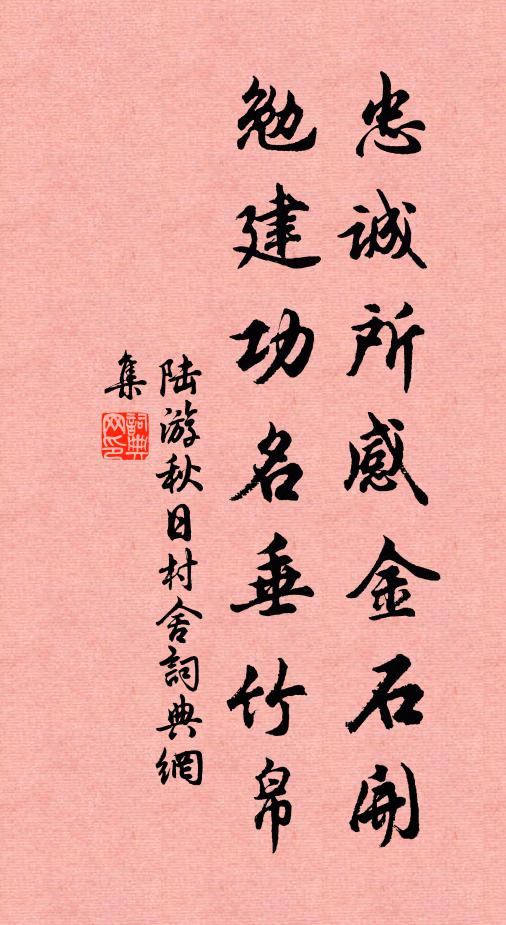 忠诚所感金石開
勉建功名垂竹帛
陆游秋日村舍詞典網
集
詞典
网印